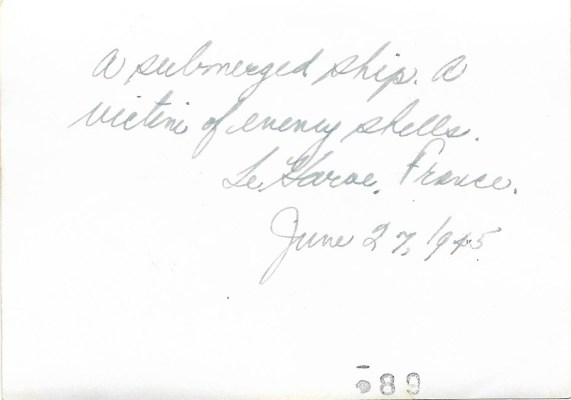 A submerged ship. A
victim of enemy shells.
Le Harve, France.
June 27, 1945
689